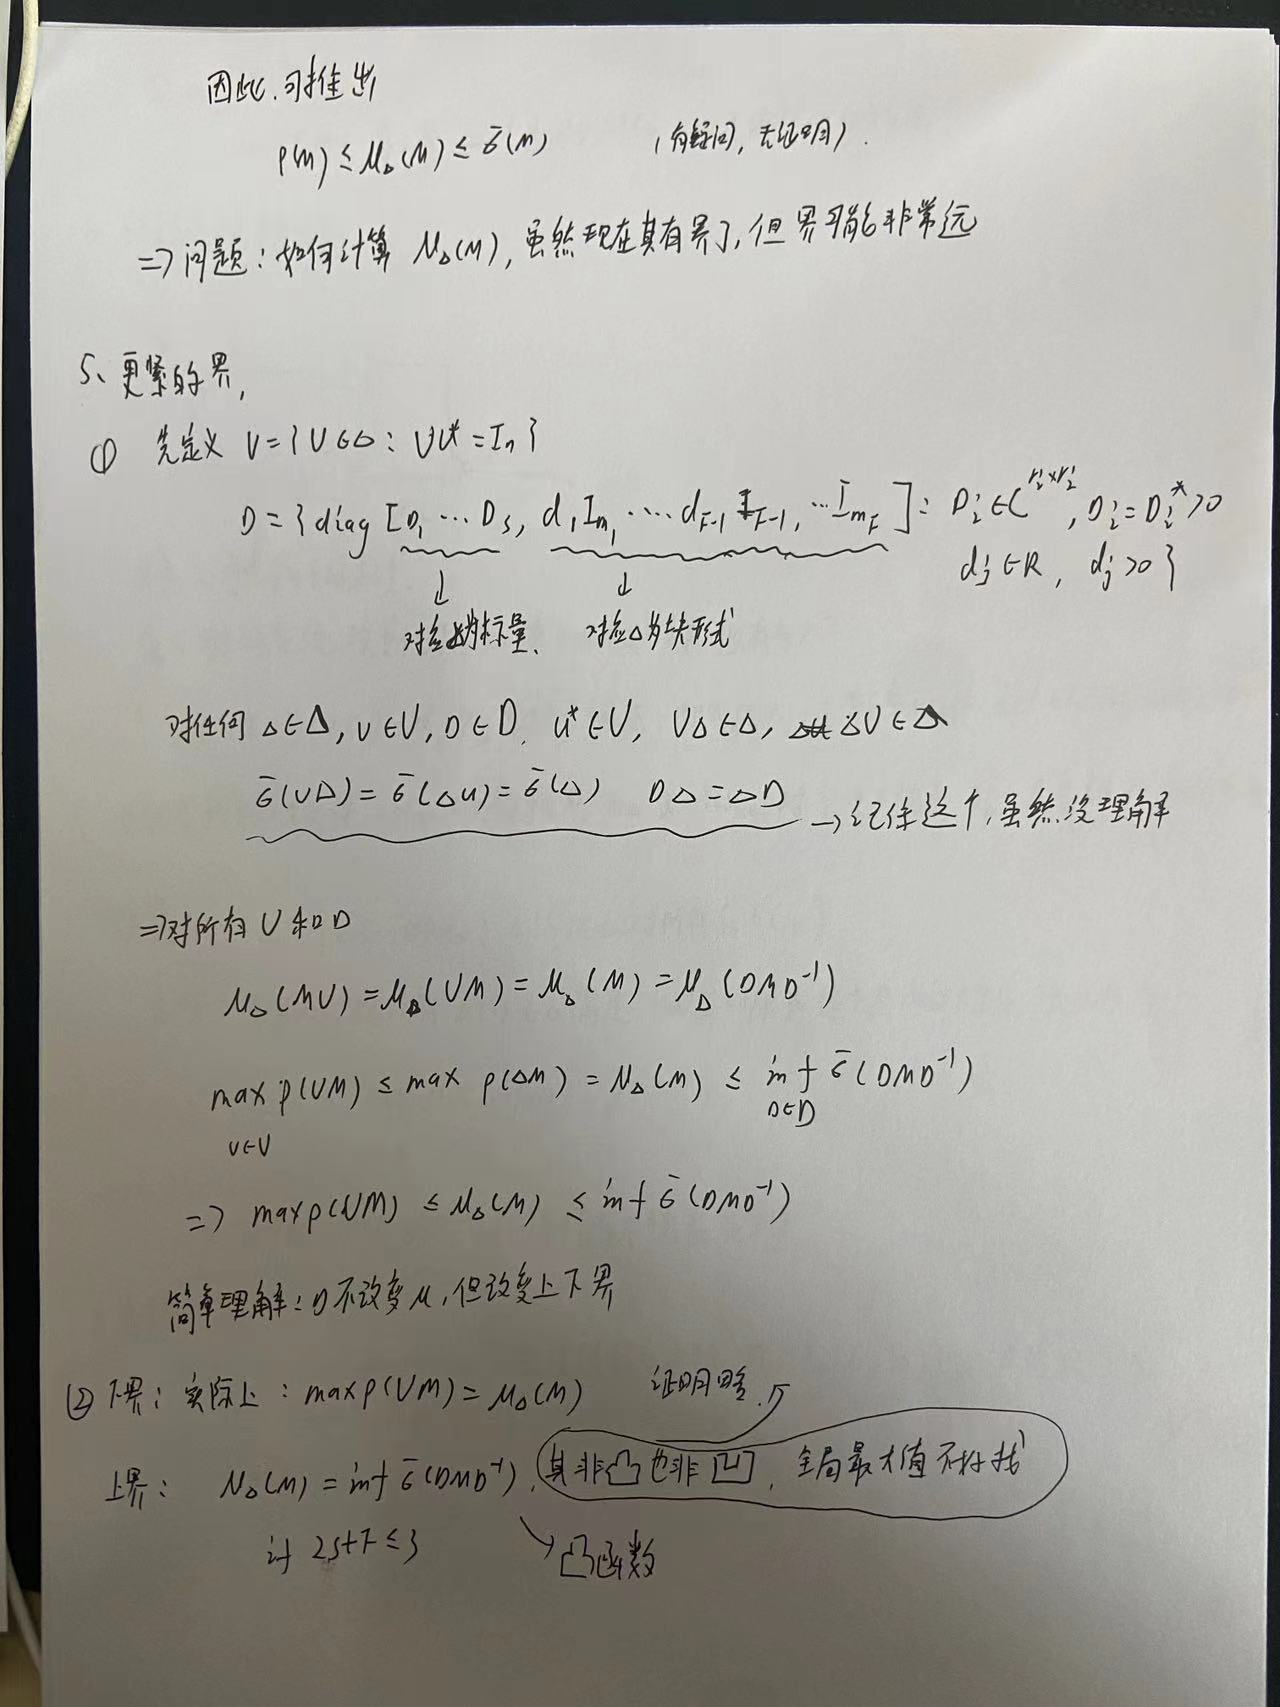 因此.可推出
ρ(M) ≤ μ_Δ(M) ≤ σ̄(M) (有疑问, 无证明).
=> 问题: 如何计算 μ_Δ(M), 虽然现在其有界了, 但界可能非常远
5、更紧的界,
① 先定义 U={U∈Δ: UU*=I_n}
D={diag[D_1 ... D_s, d_1I_m_1 .... d_{F-1}I_{F-1}, ...I_{m_F}]: D_i∈C^{r_i×r_i}, D_i=D_i*>0
d_j∈R, d_j>0}
↓ ↓
对应为标量、 对应Δ为块形式
对任何 Δ∈Δ, U∈U, D∈D. U*∈U, UΔ∈Δ, ΔU∈Δ
σ̄(UΔ)=σ̄(ΔU)=σ̄(Δ) DΔ=ΔD → 记住这个, 虽然没理解
=>对所有U和D
μ_Δ(MU)=μ_Δ(UM)=μ_Δ(M)=μ_Δ(DMD^{-1})
max ρ(UM) ≤ max ρ(ΔM) = μ_Δ(M) ≤ inf σ̄(DMD^{-1})
U∈U D∈D
=> max ρ(UM) ≤ μ_Δ(M) ≤ inf σ̄(DMD^{-1})
简单理解: D不改变μ, 但改变上下界
② 下界: 实际上: max ρ(UM) = μ_Δ(M) 证明略.
上界: μ_Δ(M) = inf σ̄(DMD^{-1}), 其非凸也非凹, 全局最大值不好找
if 2S+F≤3 ↘ 凸函数